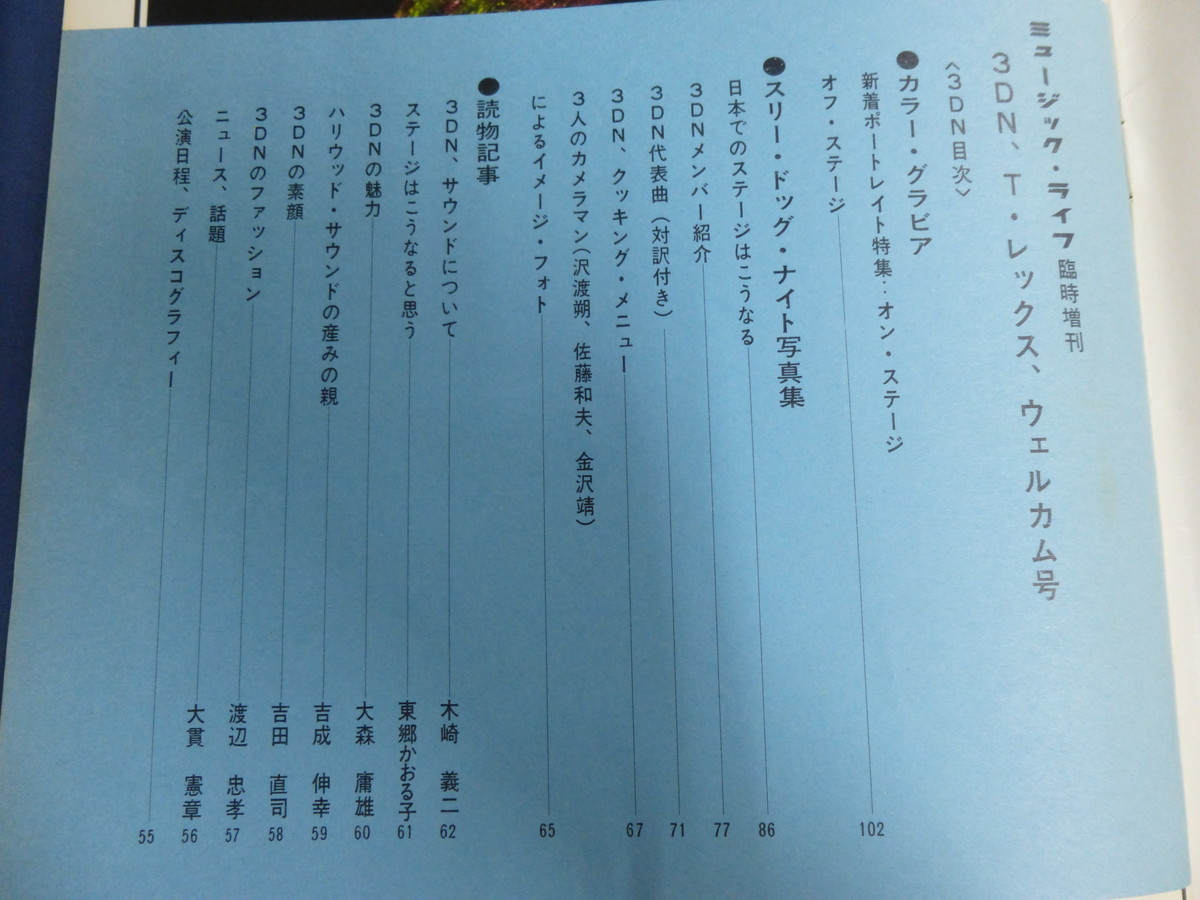 ミュージック・ライフ臨時増刊
3DN、T・レックス、ウェルカム号
〈3DN目次〉
●カラー・グラビア
新着ポートレイト特集：オン・ステージ
オフ・ステージ 102
●スリー・ドッグ・ナイト写真集
日本でのステージはこうなる 86
3DNメンバー紹介 77
3DN代表曲（対訳付き） 71
3DN、クッキング・メニュー 67
3人のカメラマン（沢渡朔、佐藤和夫、金沢靖）
によるイメージ・フォト 65
●読物記事
3DN、サウンドについて 木崎 義二 62
ステージはこうなると思う 東郷かおる子 61
3DNの魅力 大森 庸雄 60
ハリウッド・サウンドの産みの親 吉成 伸幸 59
3DNの素顔 吉田 直司 58
3DNのファッション 渡辺 忠孝 57
ニュース、話題 大貫 憲章 56
公演日程、ディスコグラフィー 55